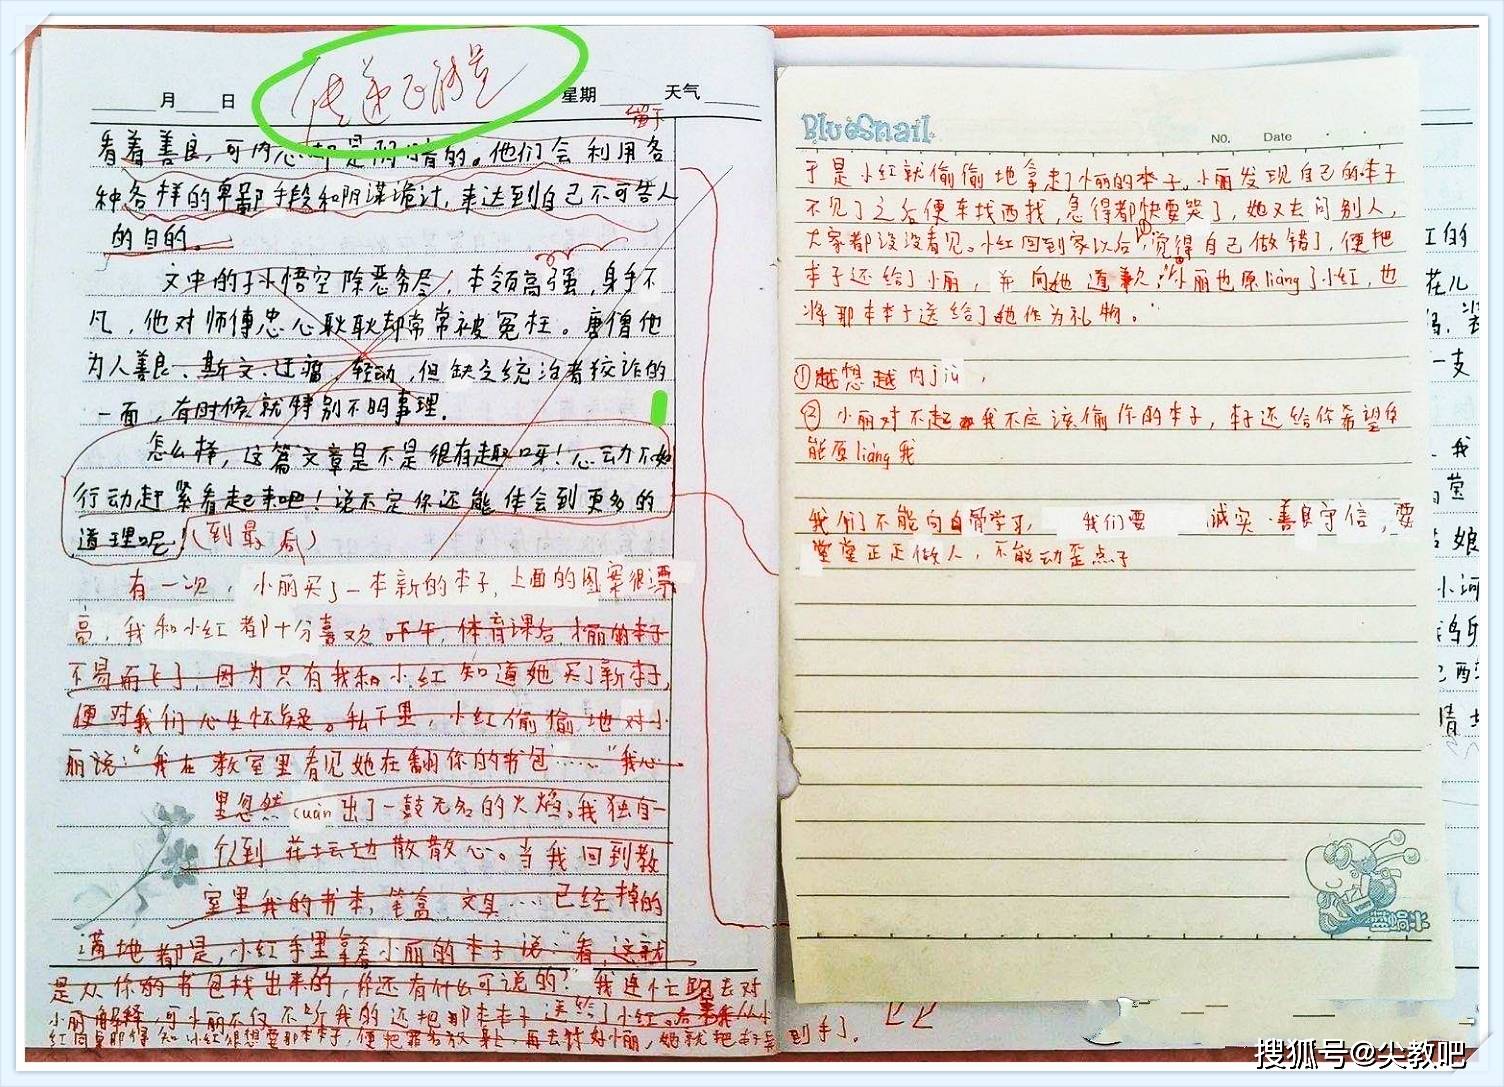 传递正能量
月 日 星期 天气
留下
看着善良，可内心却是阴暗的。他们会利用各
种各样的卑鄙手段和阴谋诡计，来达到自己不可告人
的目的。
文中的孙悟空除恶务尽，本领高强，身手不
凡，他对师傅忠心耿耿却常常被冤枉。唐僧他
为人善良、斯文、迂腐，轻动，但缺乏统治者狡诈的
一面，有时候就特别不明事理.
怎么样，这篇文章是不是很有趣呀！心动不如
行动赶紧看起来吧！说不定你还能体会到更多的
道理呢！(到最后)
有一次，小丽买了一本新的本子，上面的图案很漂
高，我和小红都十分喜欢 下午，体育课后，小丽的本子
不易而飞了，因为只有我和小红知道她买了新本子，
便对我们心生怀疑。私下里，小红偷偷地对小
丽说：“我在教室里看见她在翻你的书包……”我心
里忽然cuàn出了一鼓无名的火焰。我独自一
人到花坛边散散心。当我回到教
室里我的书本，笔盒，文具……已经掉的
满地都是，小红手里拿着小丽的本子说：“看，这就
是从你的书包找出来的，你还有什么可说的？”我连忙跑去对
小丽解释，可小丽不仅不听我的还把那本本子送给了小红。后来我从小
红同桌那得知小红很想要那本本子，便把罪名放身上，再去讨好小丽，她就把本子弄到手了。
BlueSnail
NO. Date
于是小红就偷偷地拿走了小丽的本子，小丽发现自己的本子
不见了之后便东找西找，急得都快要哭了，她又去问别人，
大家都说没看见。小红回到家以后①，觉得自己做错了，便把
本子还给了小丽，并向她道歉：“②”小丽也原liàng了小红，也
将那本本子送给了她作为礼物。
①越想越内jiù，
②小丽对不起，我不应该偷你的本子，本子还给你希望你
能原liàng我
我们不能向白骨学习，我们要 诚实、善良守信，要
堂堂正正做人，不能动歪点子
红的
花儿
一支
我
姑娘
小河
晴
搜狐号@尖教吧